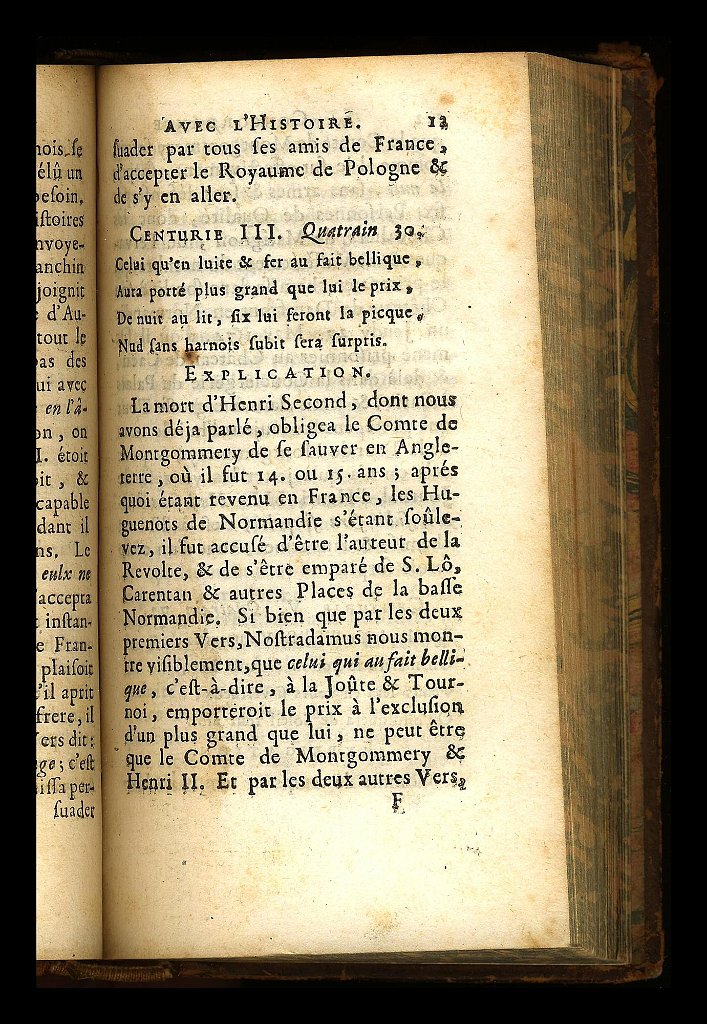 nois, se
élû un
besoin,
istoires
nvoye-
anchin
joignit
d'Au-
tout le
pas des
ui avec
en l'â-
on, on
I. étoit
oit, &
capable
dant il
ns. Le
eulx ne
'accepta
instan-
e Fran-
plaisoit
'il aprit
frere, il
Vers dit:
ge; c'est
issa per-
suader
AVEC L'HISTOIRE.
ſuader par tous ſes amis de France,
d'accepter le Royaume de Pologne &
de s'y en aller.
CENTURIE III. Quatrain 30.
Celui qu'en luite & fer au fait bellique,
Aura porté plus grand que lui le prix,
De nuit au lit, ſix lui feront la picque,
Nud ſans harnois ſubit ſera ſurpris.
EXPLICATION.
La mort d'Henri Second, dont nous
avons déja parlé, obligea le Comte de
Montgommery de ſe ſauver en Angle-
terre, où il fut 14. ou 15. ans; aprés
quoi étant revenu en France, les Hu-
guenots de Normandie s'étant ſoûle-
vez, il fut accuſé d'être l'auteur de la
Revolte, & de s'être emparé de S. Lô,
Carentan & autres Places de la baſſe
Normandie. Si bien que par les deux
premiers Vers, Noſtradamus nous mon-
tre viſiblement, que celui qui au fait belli-
que, c'eſt-à-dire, à la Joûte & Tour-
noi, emporteroit le prix à l'excluſion
d'un plus grand que lui, ne peut être
que le Comte de Montgommery &
Henri II. Et par les deux autres Vers,
F